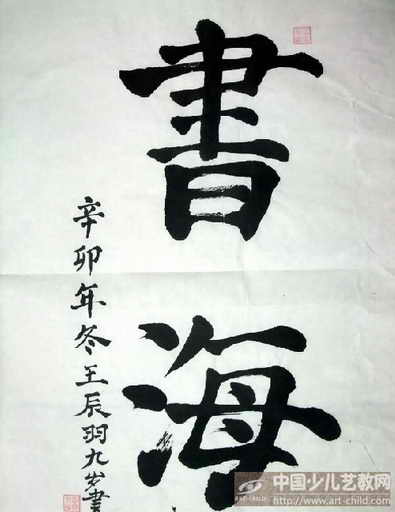 書海
辛卯年冬王辰羽九岁書
中国少儿艺教网
http://www.art-child.com